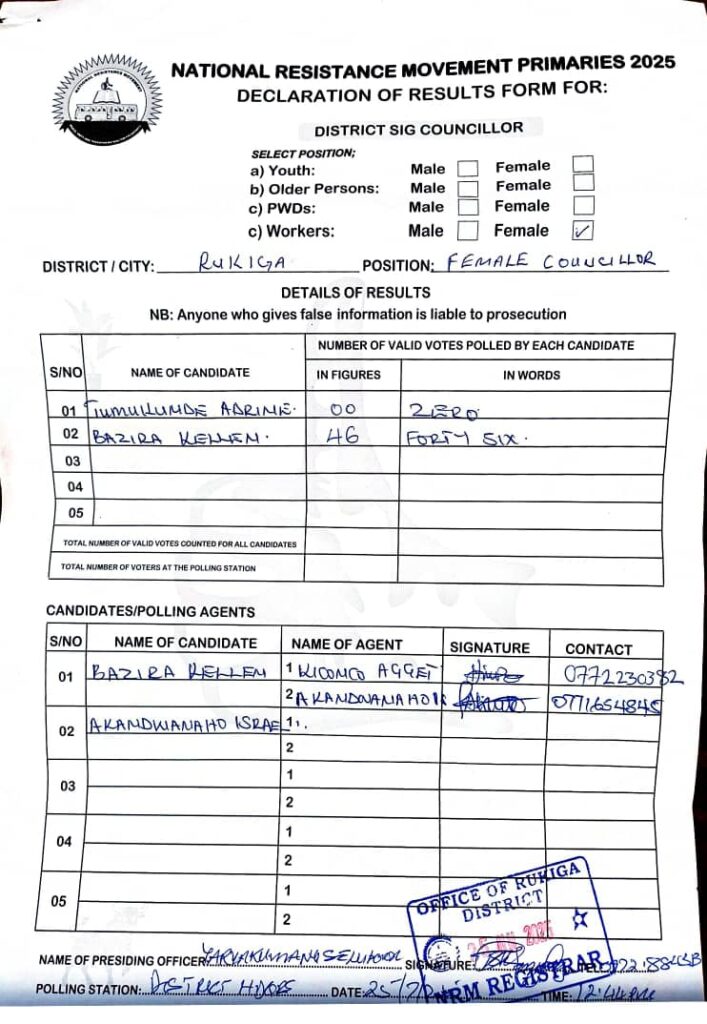 NATIONAL RESISTANCE MOVEMENT PRIMARIES 2025
DECLARATION OF RESULTS FORM FOR:
DISTRICT SIG COUNCILLOR
SELECT POSITION;
a) Youth: Male Female
b) Older Persons: Male Female
c) PWDs: Male Female
c) Workers: Male Female ✓
DISTRICT / CITY: RUKIGA POSITION: FEMALE COUNCILLOR
DETAILS OF RESULTS
NB: Anyone who gives false information is liable to prosecution
S/NO NAME OF CANDIDATE NUMBER OF VALID VOTES POLLED BY EACH CANDIDATE
IN FIGURES IN WORDS
01 TUMUKUNDE ADRINE. 00 ZERO
02 BAZIRA KELLEN. 46 FORTY SIX.
03
04
05
TOTAL NUMBER OF VALID VOTES COUNTED FOR ALL CANDIDATES
TOTAL NUMBER OF VOTERS AT THE POLLING STATION
CANDIDATES/POLLING AGENTS
S/NO NAME OF CANDIDATE NAME OF AGENT SIGNATURE CONTACT
01 BAZIRA KELLEN 1 KICONCO AGGET 0772230382
2 AKANDWANAHO 0771654845
02 AKANDWANAHO ISRAEL 1
2
03 1
2
04 1
2
05 1
2
OFFICE OF RUKIGA
DISTRICT
NRM REGISTRAR
NAME OF PRESIDING OFFICER: SIGNATURE: TEL:
POLLING STATION: DISTRICT HDQRS DATE: 25/7/ TIME: 12:44